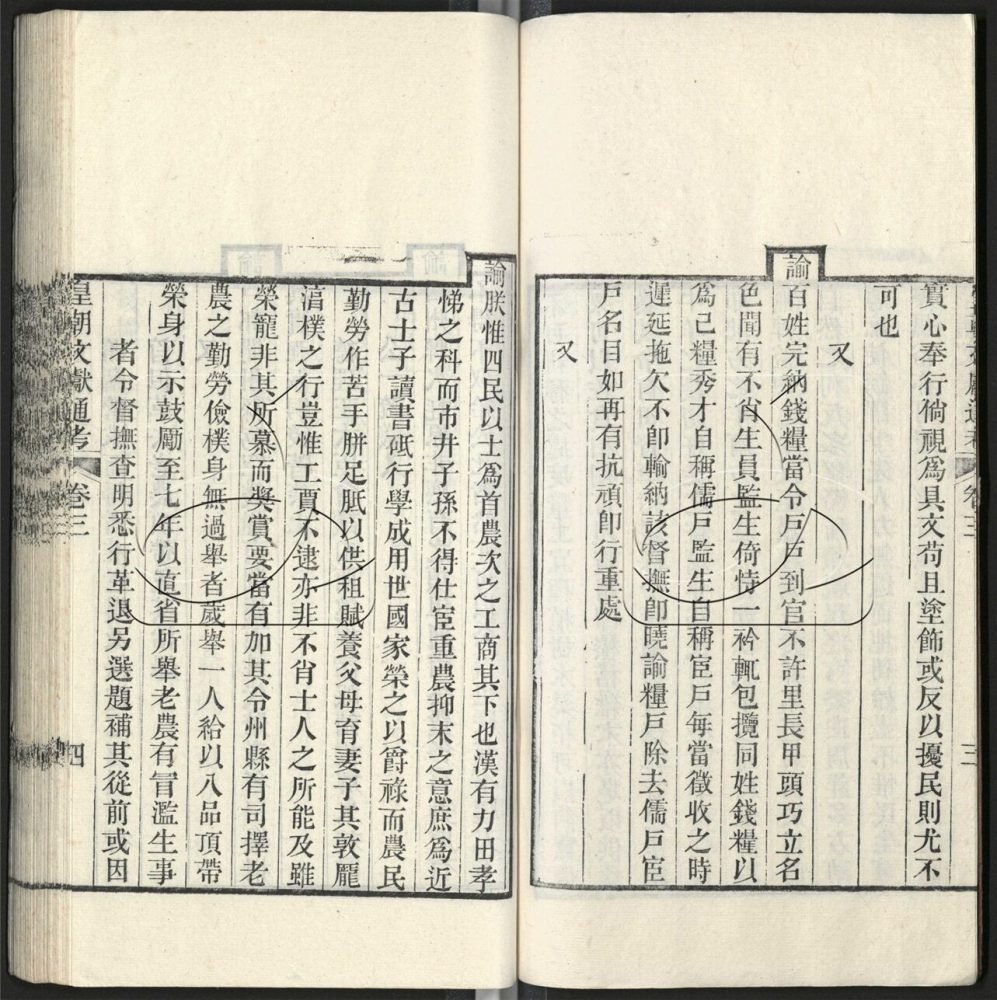 實心奉行倘視爲具文苟且塗飾或反以擾民則尤不
可也
又
諭百姓完納錢糧當令戶戶到官不許里長甲頭巧立名
色聞有不肖生員監生倚恃一衿輒包攬同姓錢糧以
爲己糧秀才自稱儒戶監生自稱宦戶每當徵收之時
遲延拖欠不卽輸納該督撫卽曉諭糧戶除去儒戶宦
戶名目如再有抗頑卽行重處
又
諭朕惟四民以士爲首農次之工商其下也漢有力田孝
悌之科而市井子孫不得仕宦重農抑末之意庶爲近
古士子讀書砥行學成用世國家榮之以爵祿而農民
勤勞作苦手胼足胝以供租賦養父母育妻子其敦龎
淳樸之行豈惟工賈不逮亦非不肖士人之所能及雖
榮寵非其所慕而奬賞要當有加其令州縣有司擇老
農之勤勞儉樸身無過舉者歲舉一人給以八品頂帶
榮身以示鼓勵至七年以直省所舉老農有冒濫生事
者令督撫查明悉行革退另選題補其從前或因
皇朝文獻通考 卷三 四